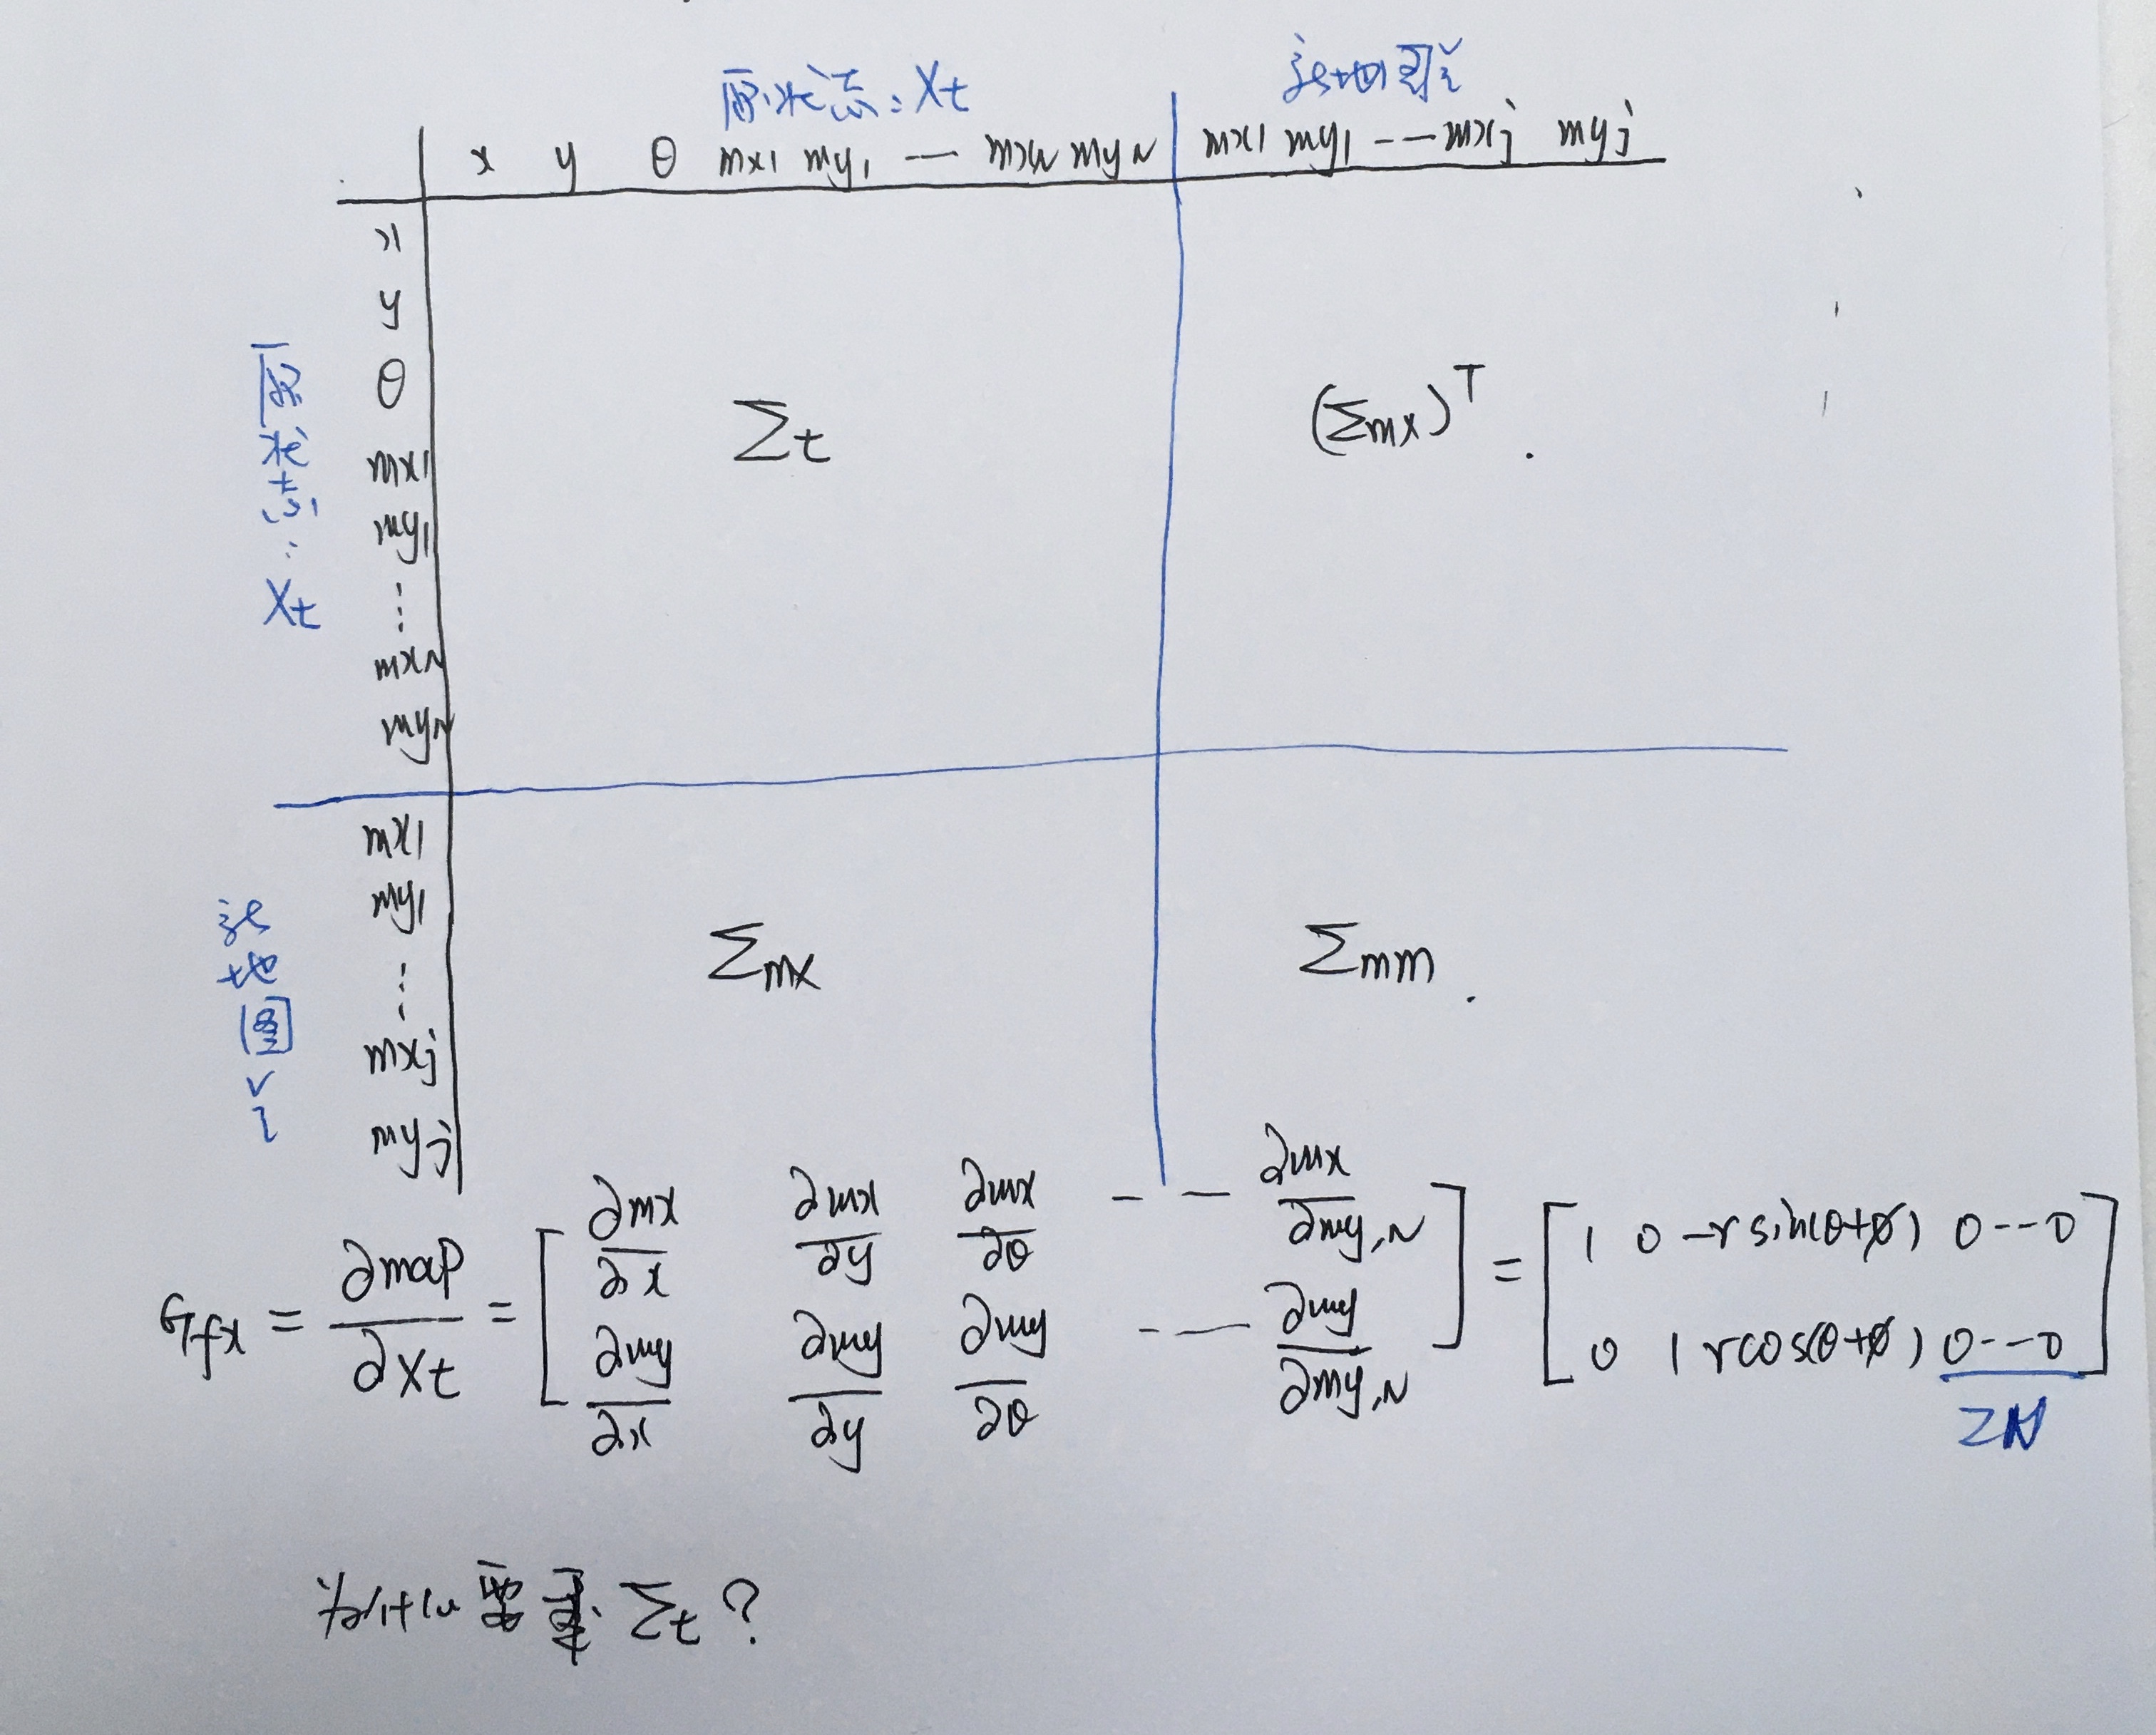 原状态: Xt 该地图
x y θ mx1 my1 — mxN myN mx1 my1 --- mxj myj
x
y
θ
mx1
my1
⋮
mxN
myN
原状态: Xt
Σt (Σmx)^T
mx1
my1
⋮
mxj
myj
该地图
Σmx Σmm
Gfx = ∂map/∂Xt = [ ∂mx/∂x ∂mx/∂y ∂mx/∂θ -- ∂mx/∂my,N ; ∂my/∂x ∂my/∂y ∂my/∂θ -- ∂my/∂my,N ] = [ 1 0 -r sin(θ+ø) 0---0 ; 0 1 r cos(θ+ø) 0---0 ]
2N
为什么 Σt ?